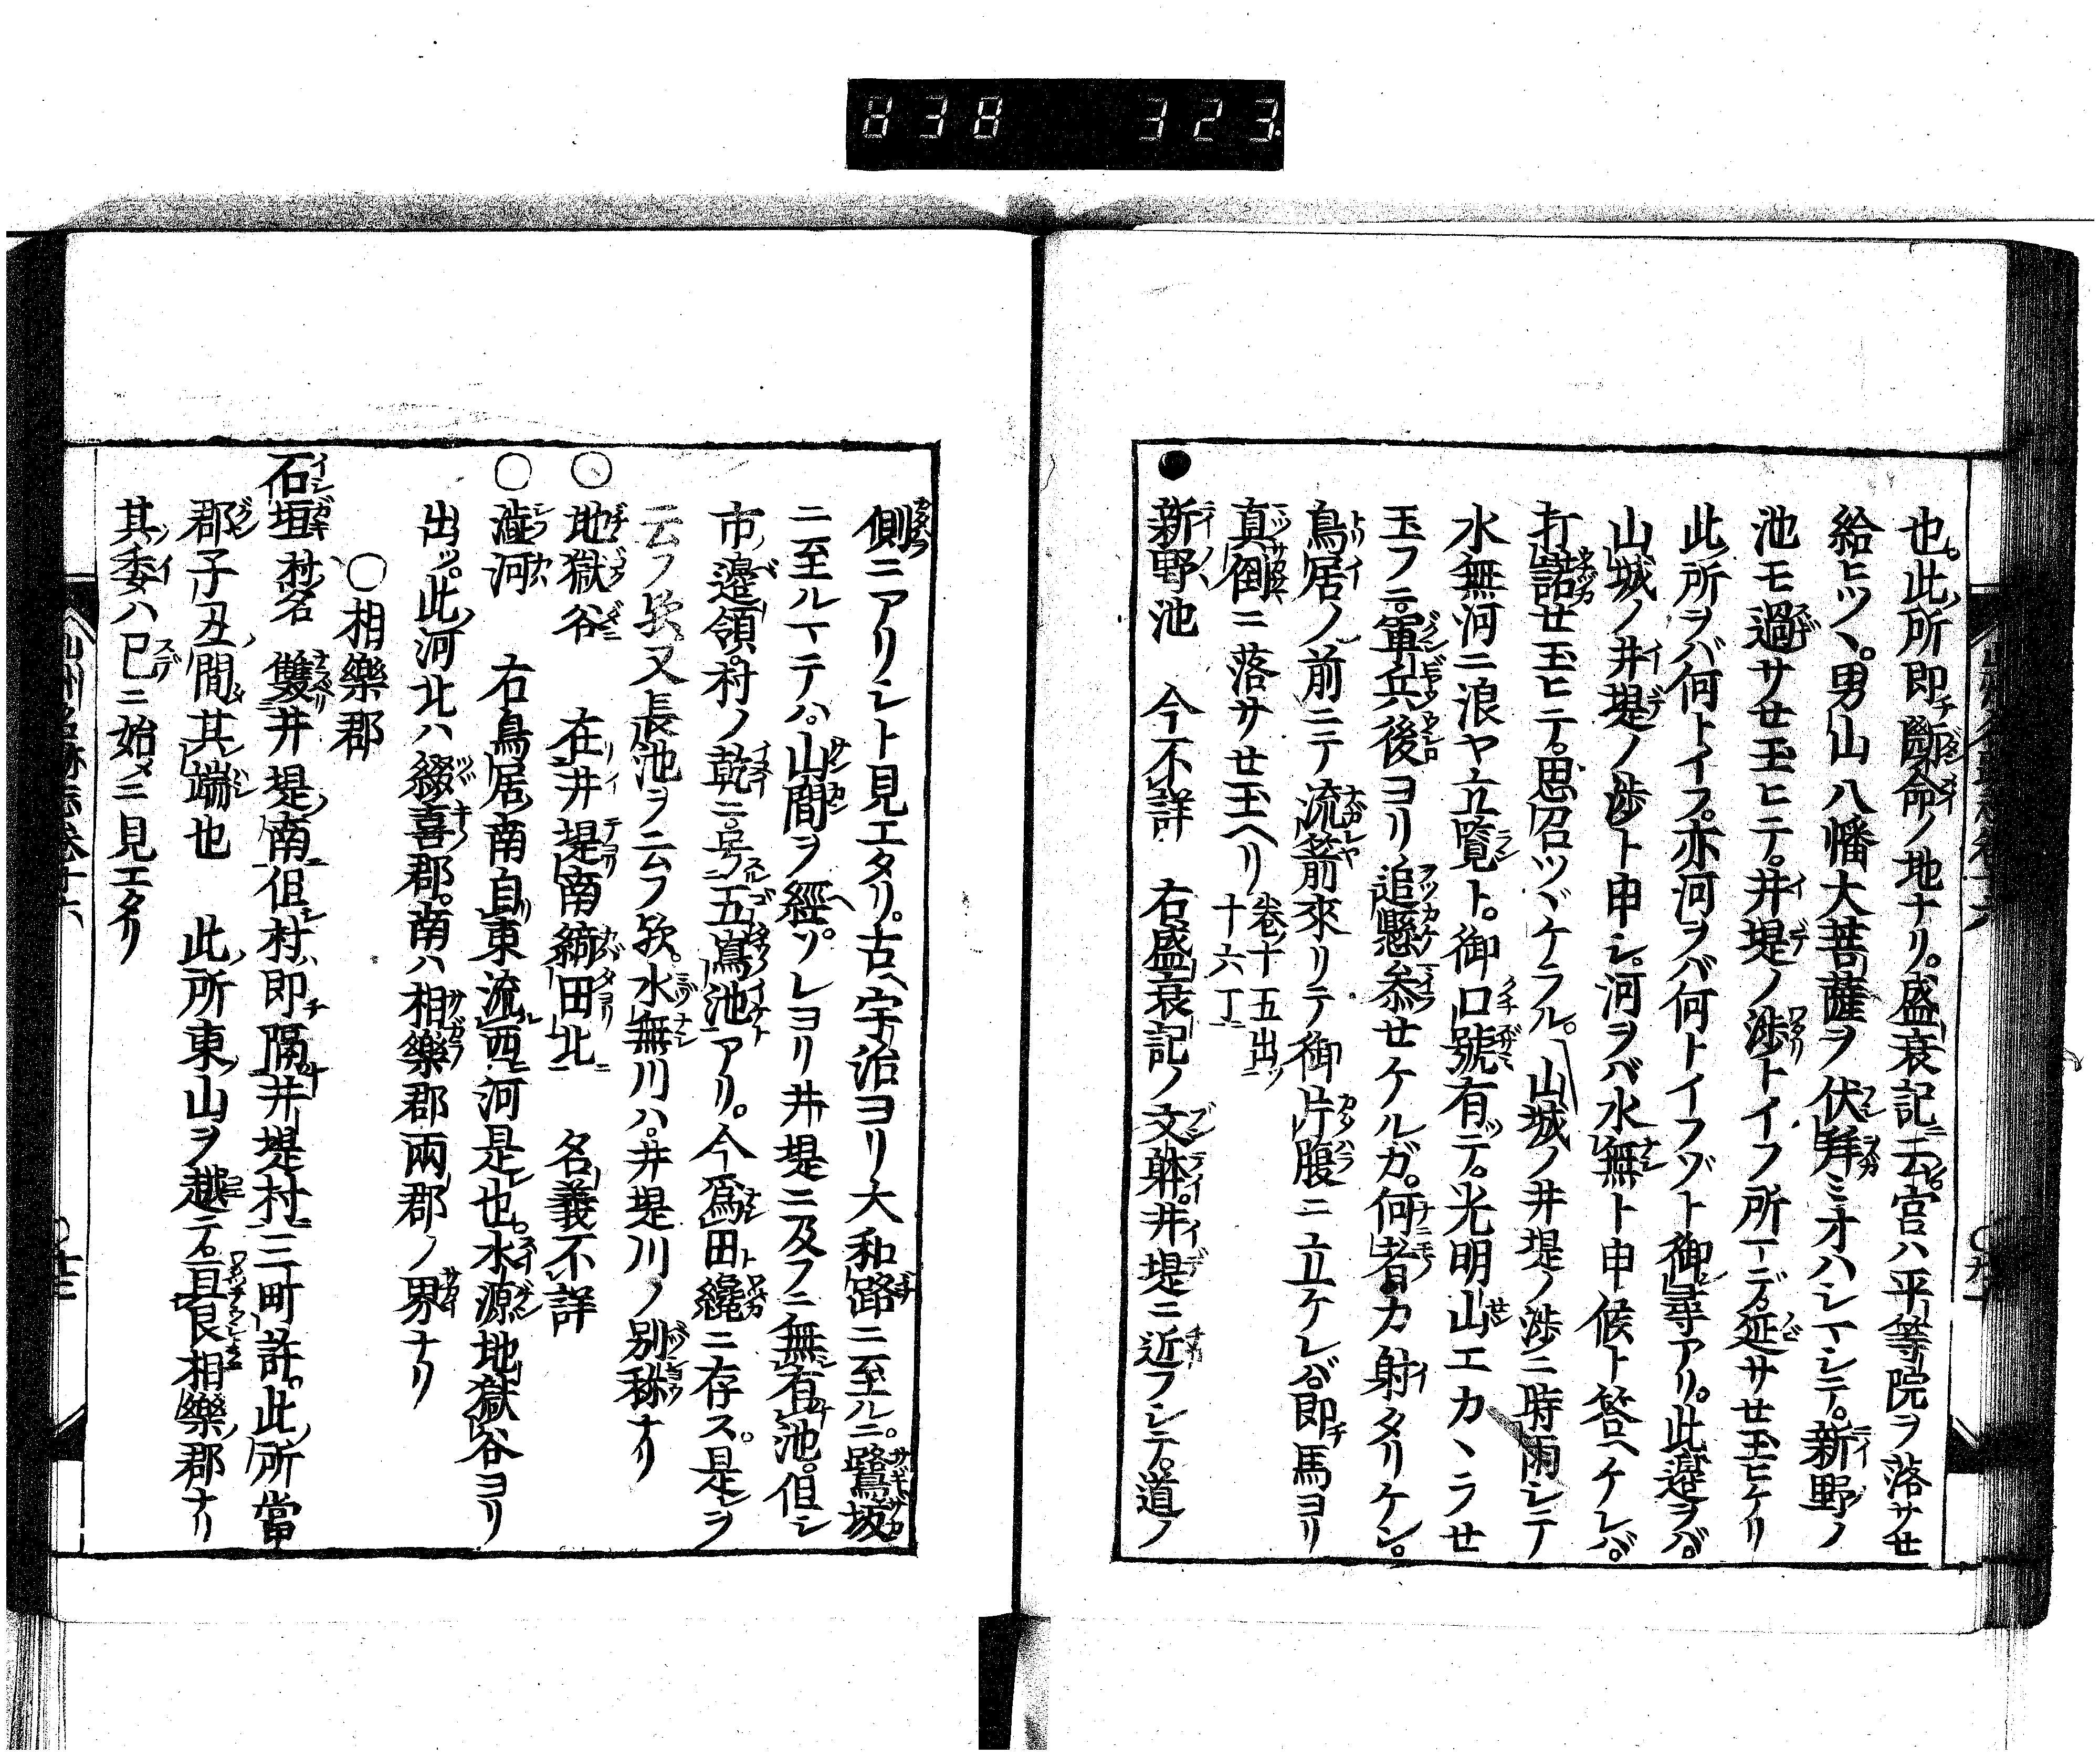 838 323
也。此所即斷命ノ地ナリ。盛衰記ニ云。宮ハ平等院ヲ落サセ
給ヒツヽ。男山八幡大菩薩ヲ伏拜ミオハシマシテ。新野ノ
池モ過サセ玉ヒテ。井堤ノ渉トイフ所マデ延サセ玉ヒケリ
此所ヲバ何トイフ。亦河ヲバ何トイフゾト御尋アリ。此邊ヲバ。
山城ノ井堤ノ渉ト申シ。河ヲバ水無ト申候ト答ヘケレバ。
打諾セ玉ヒテ。思召ツヾケラル。山城ノ井堤ノ渉ニ時雨シテ
水無河ニ浪ヤ立覽ト。御口號有デ。光明山エカヽラセ
玉フニ。軍兵後ヨリ追懸參セケルガ。何者カ射タリケン。
鳥居ノ前ニテ流箭來リテ御片腹ニ立ケレバ。即馬ヨリ
真倒ニ落サセ玉ヘリ 卷十五出ツ十六丁ニ
●新野池 今不詳 右盛衰記ノ文躰。井堤ニ近フシテ。道ノ
側ニアリシト見エタリ。古ヘ宇治ヨリ大和路ニ至ルニ。鷺坂
ニ至ルマテハ。山間ヲ經。ソレヨリ井堤ニ及フニ無有池。但シ
市邊領。村ノ乾ニ。号五嶌池アリ。今爲田纔ニ存ス。是ヲ
云フ欤。又長池ヲ云フ欤。水無川ハ。井堤川ノ別称ナリ
○地獄谷 在井堤南綺田北 名義不詳
○澁河 右鳥居南自東流西河是也。水源地獄谷ヨリ
出ツ。此河北ハ綴喜郡。南ハ相樂郡兩郡ノ界ナリ
○相樂郡
石垣村名 雙井堤南但村即隔井堤村三町許。此所當
郡子丑間其端也 此所東山ヲ越テ。艮相樂郡ナリ
其委ハ已ニ始メニ見エタリ